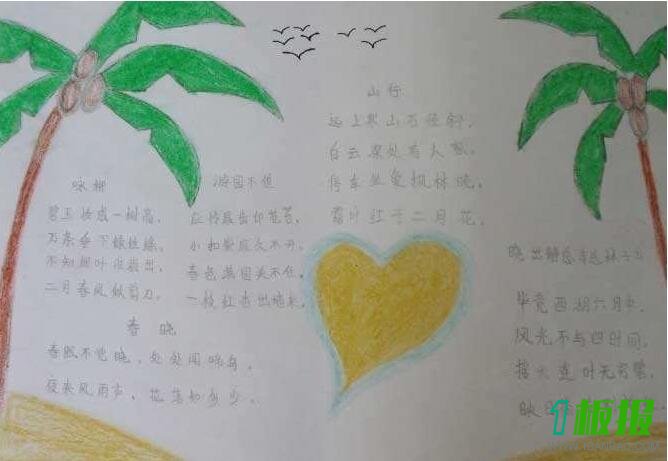 咏柳
碧玉妆成一树高,
万条垂下绿丝绦,
不知细叶谁裁出,
二月春风似剪刀。
游园不值
应怜屐齿印苍苔,
小扣柴扉久不开,
春色满园关不住,
一枝红杏出墙来。
春晓
春眠不觉晓,处处闻啼鸟,
夜来风雨声,花落知多少。
山行
远上寒山石径斜,
白云深处有人家,
停车坐爱枫林晚,
霜叶红于二月花。
晓出净慈寺送林子方
毕竟西湖六月中,
风光不与四时同,
接天莲叶无穷碧,
映日
1板报